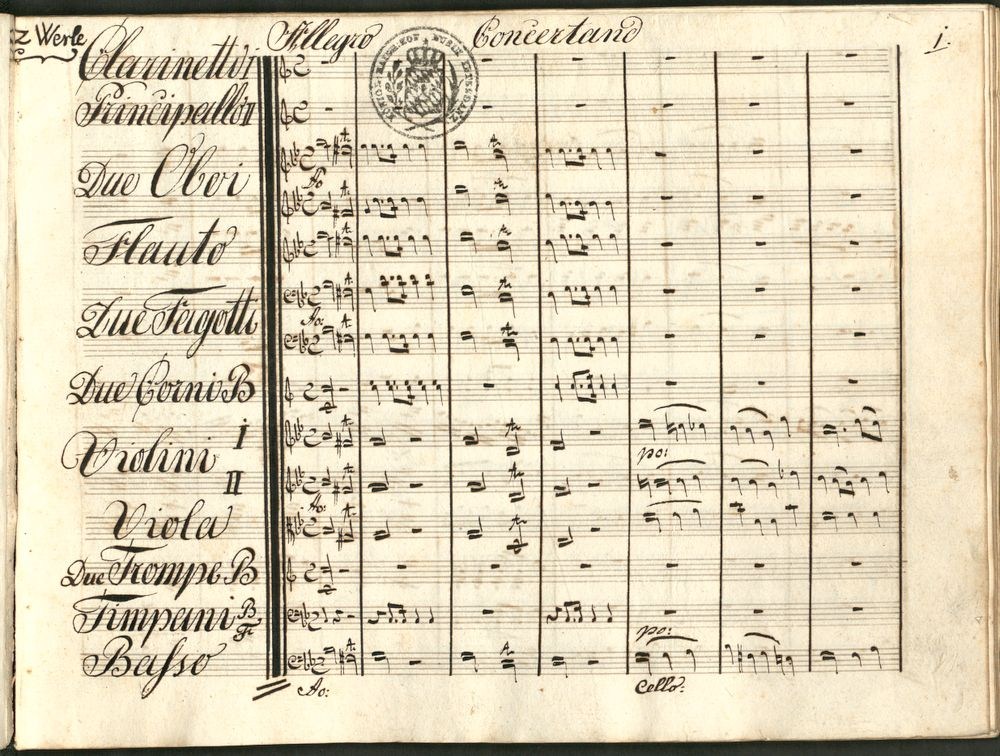 z Werle
Allegro Concertand
1.
Clarinetto I
Principello II
Due Oboi
Ao
Flauto
Due Fagotti
Ao:
Due Corni B
Violini I
po:
II
Ao:
Viola
Due Trompe B
Timpani B
po:
Basso
Ao:
Cello: